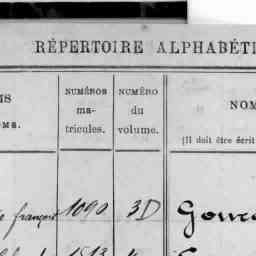 RÉPERTOIRE ALPHABÉTI
MS
NUMÉROS
ma-
tricules.
NUMÉRO
du
volume.
NOM
OMS.
(Il doit être écrit
françois 1090 3D